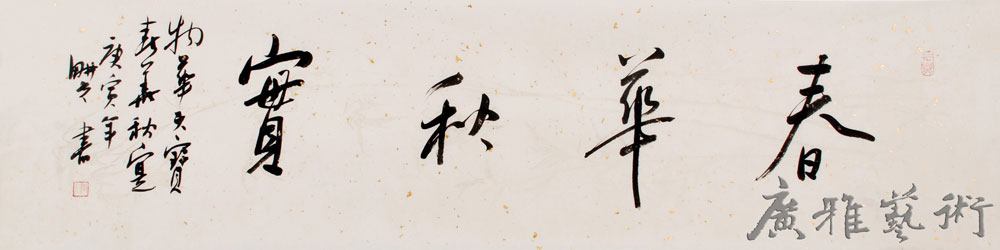 春華秋實
物華天寶
春華秋寔
庚寅年
書
廣雅藝術